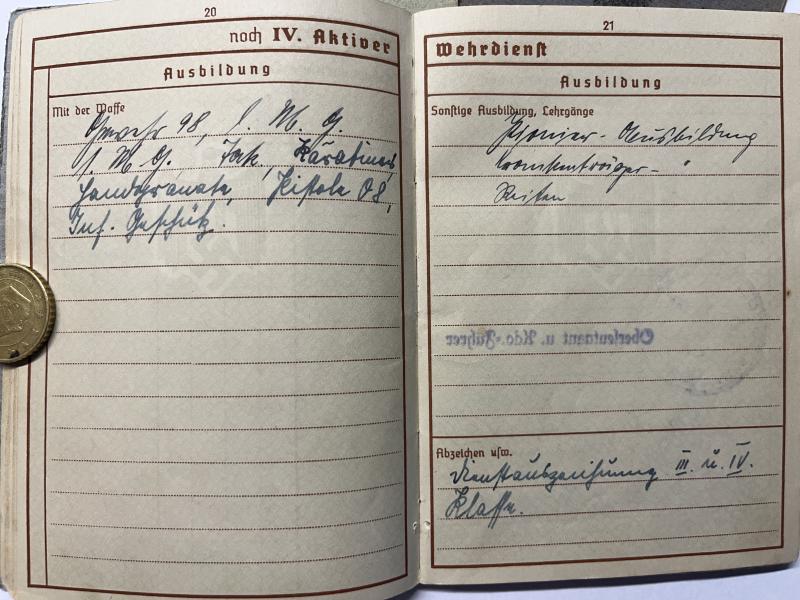 20
noch IV. Aktiver
Ausbildung
Mit der Waffe
Gewehr 98, l. M. G.
s. M. G. Pak, Karabiner,
Handgranate, Pistole 08,
Inf. Geschütz.
21
Wehrdienst
Ausbildung
Sonstige Ausbildung, Lehrgänge
Pionier-Ausbildung
Krankenträger- "
Reiten
Oberleutnant u. Kdo.-Führer
Abzeichen usw.
Dienstauszeichnung III. u. IV.
Klasse.